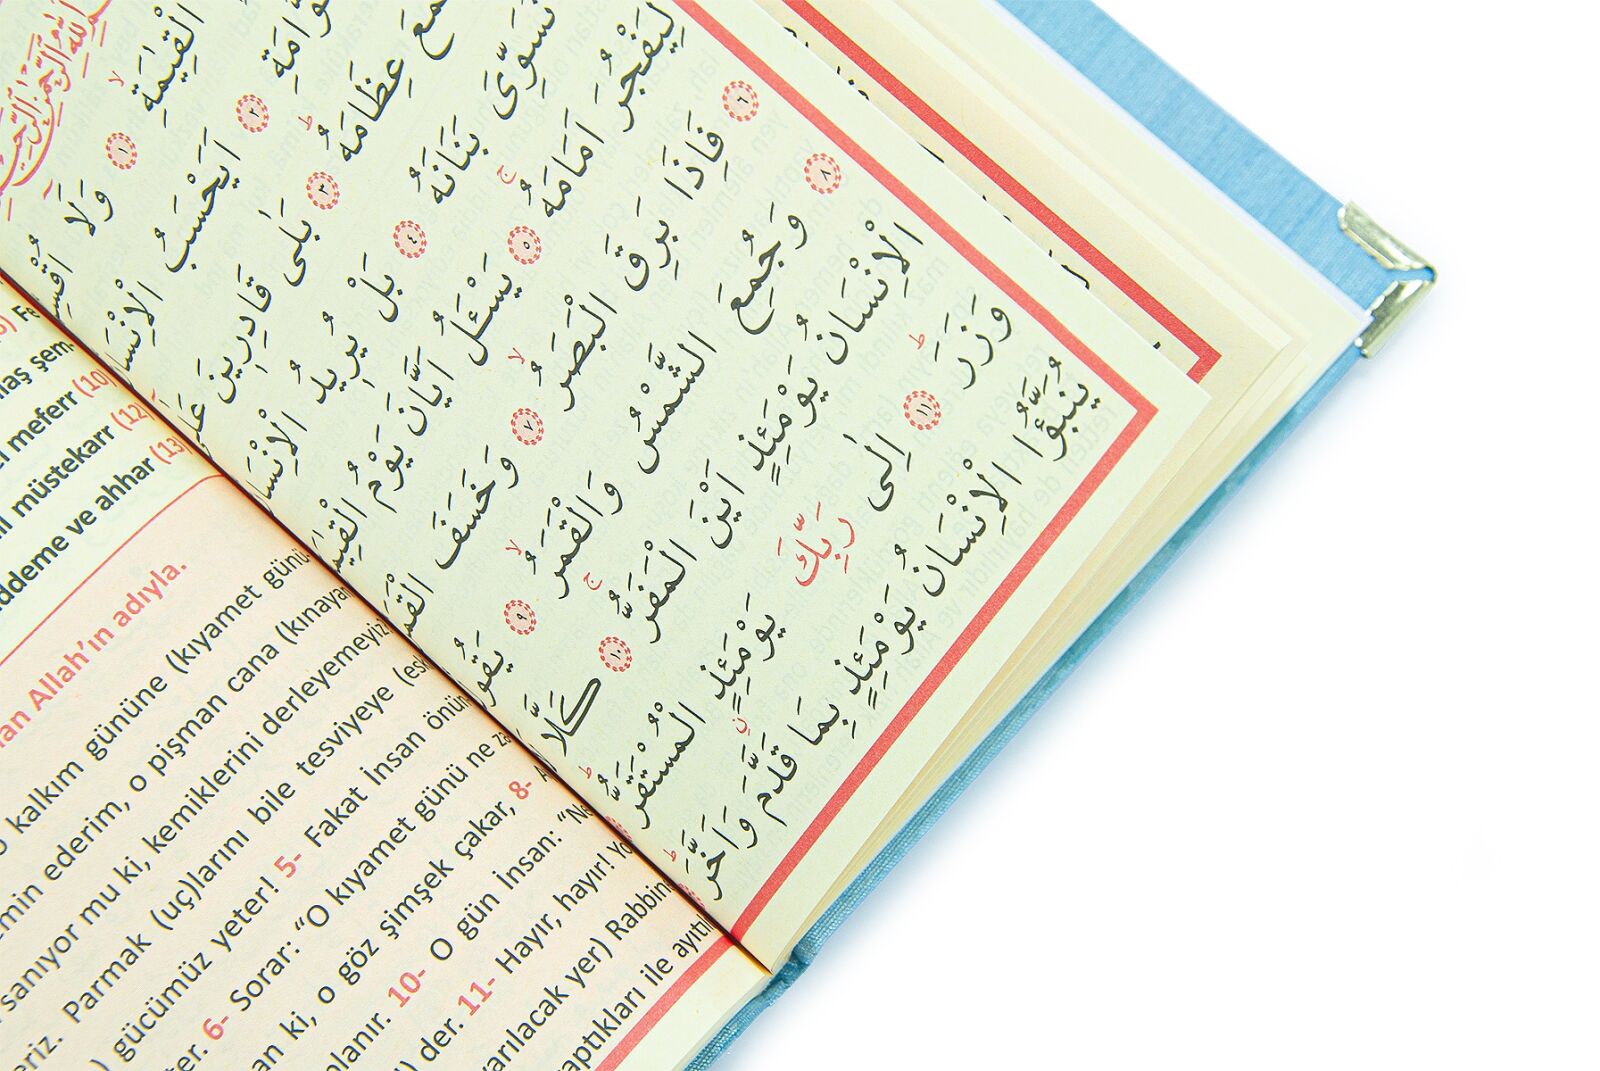 اللّٰهِ الرَّحْمٰنِ الرَّحِيمِ
الْقِيٰمَةِۙ ١ وَلَٓا اُقْسِ
وَّامَةِ ٢ اَيَحْسَبُ الْاِنْسَا
عِظَامَهُۜ ٣ بَلٰى قَادِرِينَ عَلٰ
نُسَوِّيَ بَنَانَهُ ٤ بَلْ يُرِيدُ الْاِنْسَا
لِيَفْجُرَ اَمَامَهُۚ ٥ يَسْـَٔلُ اَيَّانَ يَوْمُ الْقِيٰمَ
٦ فَاِذَا بَرِقَ الْبَصَرُۙ ٧ وَخَسَفَ الْقَمَ
٨ وَجُمِعَ الشَّمْسُ وَالْقَمَرُۙ ٩ يَقُو
الْاِنْسَانُ يَوْمَئِذٍ اَيْنَ الْمَفَرُّۚ ١٠ كَلَّا
وَزَرَۜ ١١ اِلٰى رَبِّكَ يَوْمَئِذٍ الْمُسْتَقَرُّۜ
يُنَبَّؤُا الْاِنْسَانُ يَوْمَئِذٍ بِمَا قَدَّمَ وَاَخَّرَۜ
şem
meferr (10)
müstekarr (12)
ddeme ve ahhar (13)
an Allah’ın adıyla.
kalkım gününe (kıyamet günü
min ederim, o pişman cana (kınayan
sanıyor mu ki, kemiklerini derleyemeyiz
eriz. Parmak (uç)larını bile tesviyeye (esk
) gücümüz yeter! 5- Fakat İnsan önün
ter. 6- Sorar: “O kıyamet günü ne za
an ki, o göz şimşek çakar, 8- A
nlanır. 10- O gün İnsan: “Ne
) der. 11- Hayır, hayır! Yo
varılacak yer) Rabbin
aptıkları ile ayıtıl